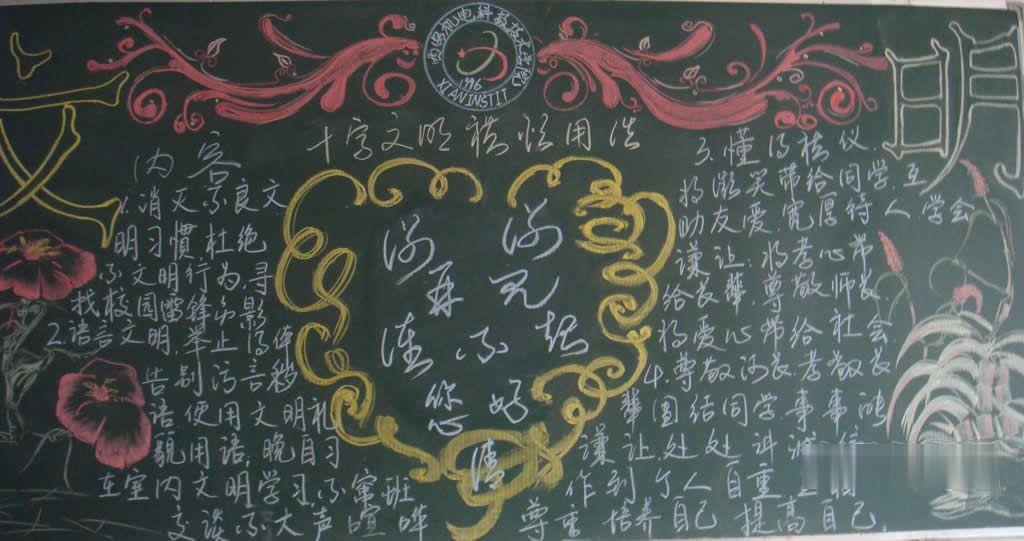 XI'AN INSTIT
1996
十字文明礼貌用语
内容
1.消灭不良文
明习惯,杜绝
不文明行为,寻
找校园雷锋影
2.语言文明,举止得体
告别污言秽
语使用文明礼
貌用语,晚自习
在室内文明学习不窜班
交谈不大声喧哗
谢谢
再见
对不起
您好
请
3.懂得礼仪
将微笑带给同学,互
助友爱,宽厚待人,学会
谦让,将孝心带
给长辈,尊敬师长,
将爱心带给社会,
4.尊敬师长孝敬长
辈团结同学事事
谦让,处处讲诚信
作到个人自重
尊重 培养自己 提高自己。
文
明